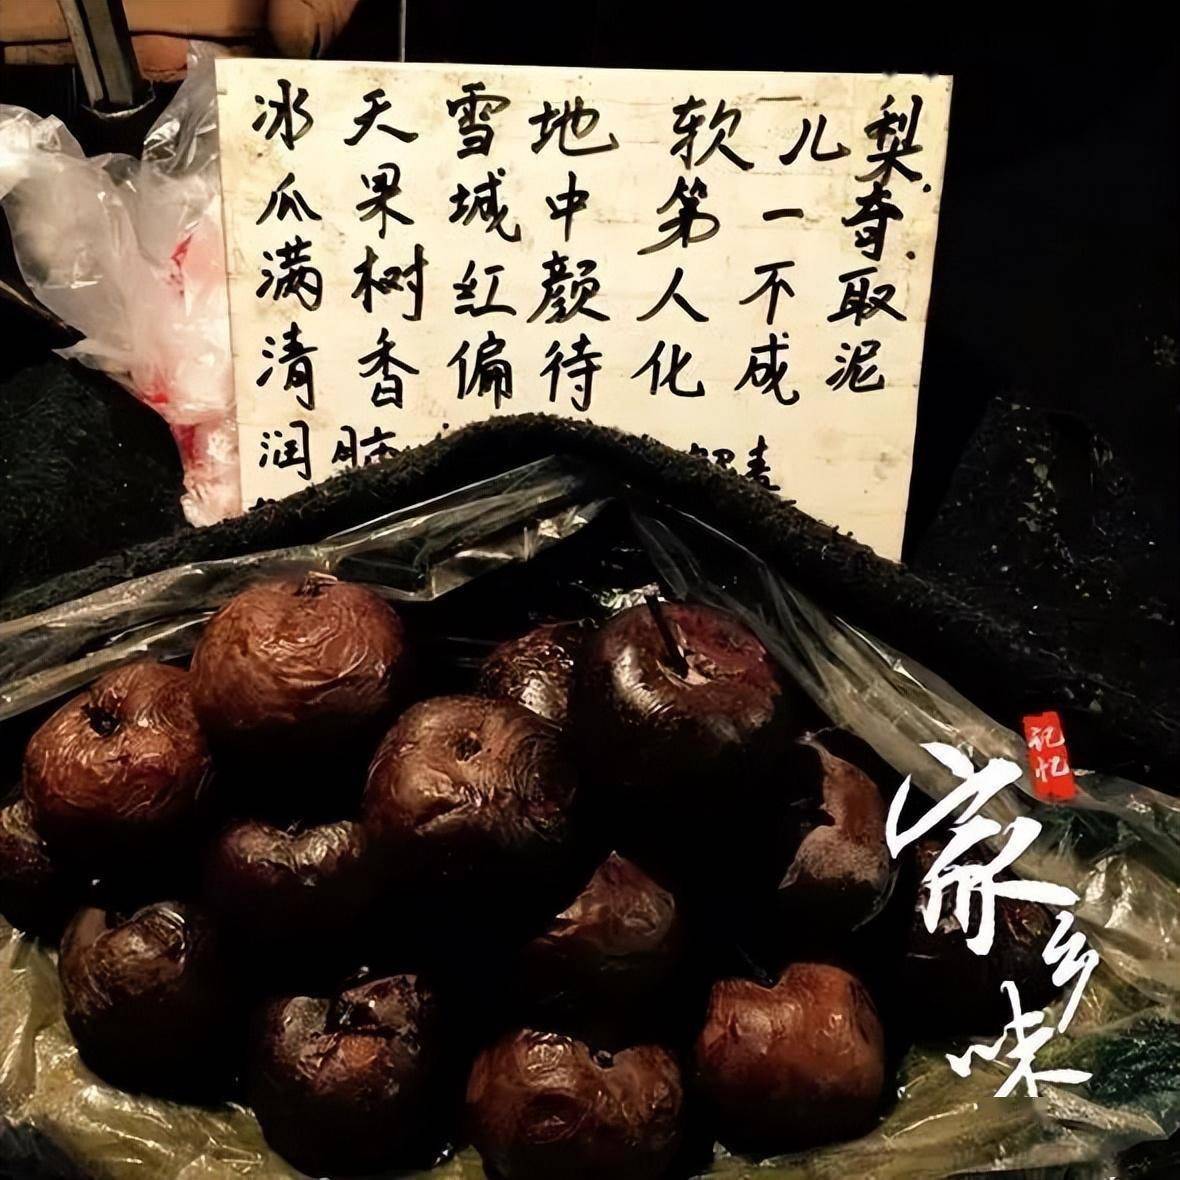 冰天雪地软儿梨.
瓜果城中第一奇.
满树红颜人不取
清香偏待化成泥
润肺
记忆
家乡味